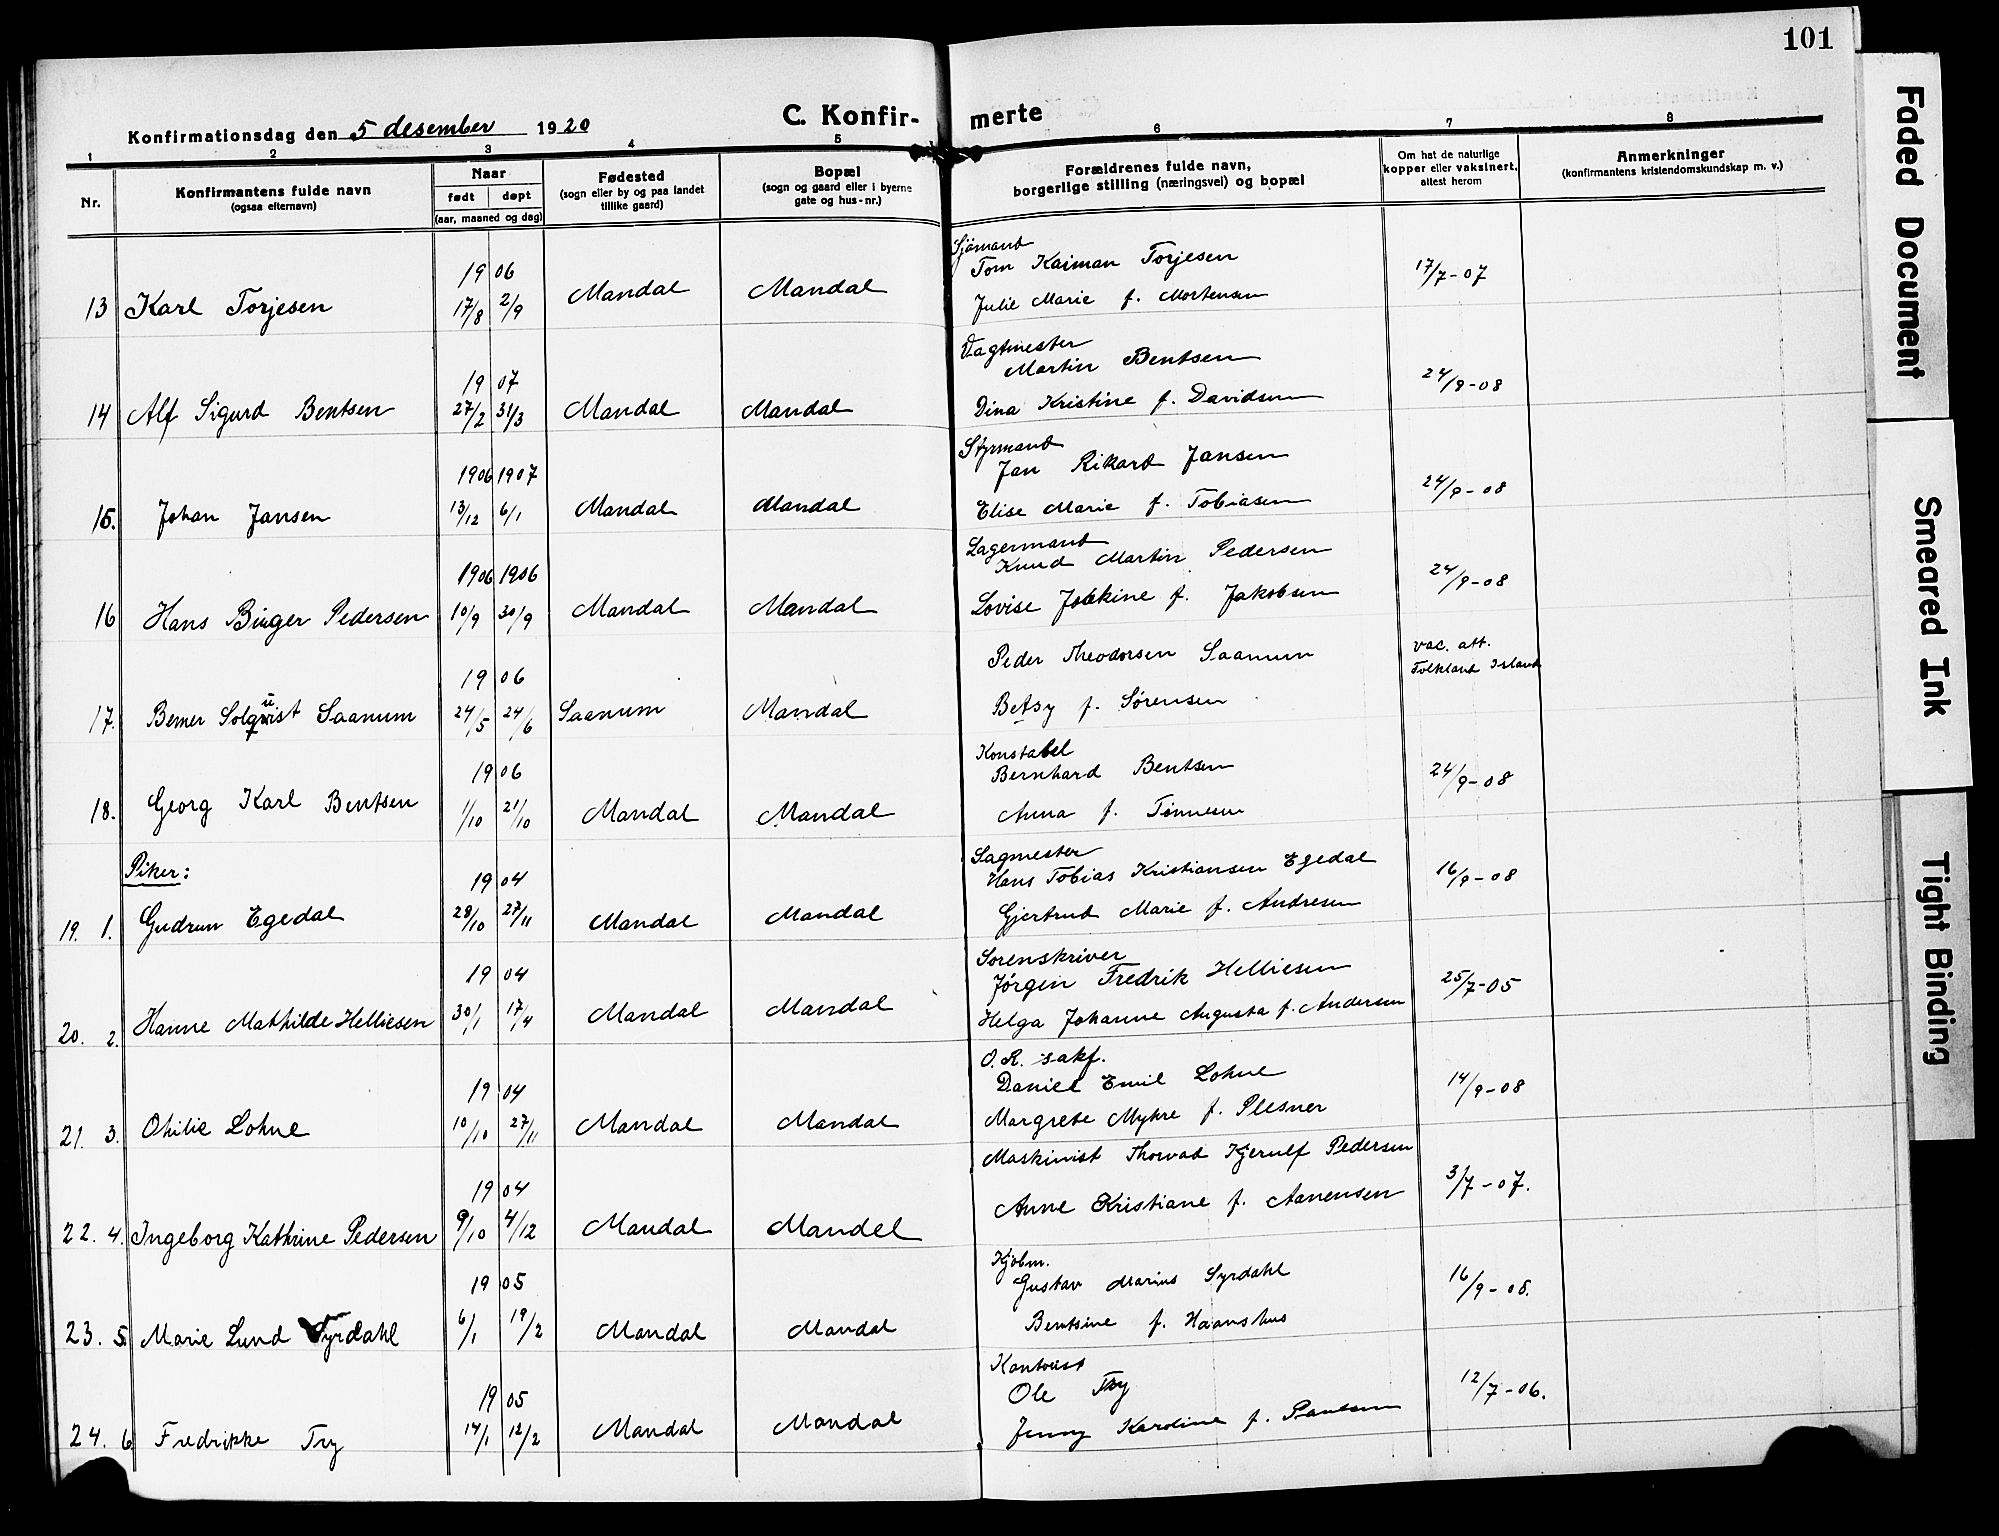 101
Konfirmationsdag den 5 desember 1920
C. Konfir- merte
1 2 3 4 5 6 7 8
Nr.
Konfirmantens fulde navn
(ogsaa efternavn)
Naar
født døpt
(aar, maaned og dag)
Fødested
(sogn eller by og paa landet
tillike gaard)
Bopæl
(sogn og gaard eller i byerne
gate og hus-nr.)
Forældrenes fulde navn,
borgerlige stilling (næringsvei) og bopæl
Om hat de naturlige
kopper eller vaksinert,
attest herom
Anmerkninger
(konfirmantens kristendomskundskap m. v.)
Sjømand
19 06 Tom Kaiman Torjesen 17/7-07
13 Karl Torjesen 17/8 2/9 Mandal Mandal Julie Marie f. Mortensen
Vagtmester
19 07 Martin Bentsen 24/9-08
14 Alf Sigurd Bentsen 27/2 31/3 Mandal Mandal Dina Kristine f. Davidsen
Styrmand
1906 1907 Jan Rikard Jansen 24/9-08
15. Johan Jansen 13/12 6/1 Mandal Mandal Elise Marie f. Tobiasen
Lagermand
1906 1906 Knud Martin Pedersen 24/9-08
16 Hans Birger Pedersen 10/9 30/9 Mandal Mandal Lovise f. Jakobsen
19 06 Peder Theodorsen Saanum vac. att.
Folkland Island
17. Berner Solquist Saanum 24/5 24/6 Saanum Mandal Betsy f. Sørensen
Konstabel
19 06 Bernhard Bentsen 24/9-08
18. Georg Karl Bentsen 1/10 21/10 Mandal Mandal Anna f. Tønnesen
Piker:
Sagmester
19 04 Hans Tobias Kristiansen Egedal 16/9-08
19. 1. Gudrun Egedal 28/10 27/11 Mandal Mandal Gjertrud Marie f. Andresen
Sorenskriver
19 04 Jørgen Fredrik Helliesen 25/7-05
20. 2. Hanne Mathilde Helliesen 30/1 17/4 Mandal Mandal Helga Johanne Augusta f. Andersen
O.R. sakf.
19 04 Daniel Emil Lohne 14/9-08
21. 3. Othilie Lohne 10/10 27/11 Mandal Mandal Margrete Myhre f. Plesner
Maskinist Thorvad Kjerulf Pedersen
19 04 3/7-07.
22. 4. Ingeborg Kathrine Pedersen 9/10 4/12 Mandal Mandel Anne Kristiane f. Aanensen
Kjøbm.
19 05 Gustav Marius Syrdahl 16/9-08.
23. 5. Marie Lund Syrdahl 6/1 19/2 Mandal Mandal Bentsine f. Haanshus
Kontorist
19 05 Ole Try 12/7-06.
24. 6 Fredrikke Try 14/1 12/2 Mandal Mandal Jenny Karoline f. Paulsen
Faded Document
Smeared Ink
Tight Binding